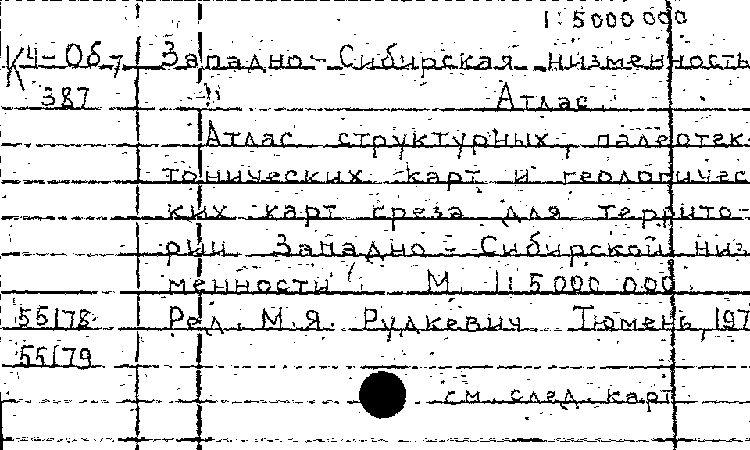 1:5 000 000
К4-06, Западно-Сибирская низменность
387 Атлас.
Атлас структурных, палеотек-
тонических карт и геологичес-
ких карт среза для террито-
рии Западно-Сибирской низ-
менности. М 1:5 000 000.
55178 Ред. М.Я. Рудкевич Тюмень, 197
55179
см. след. карт